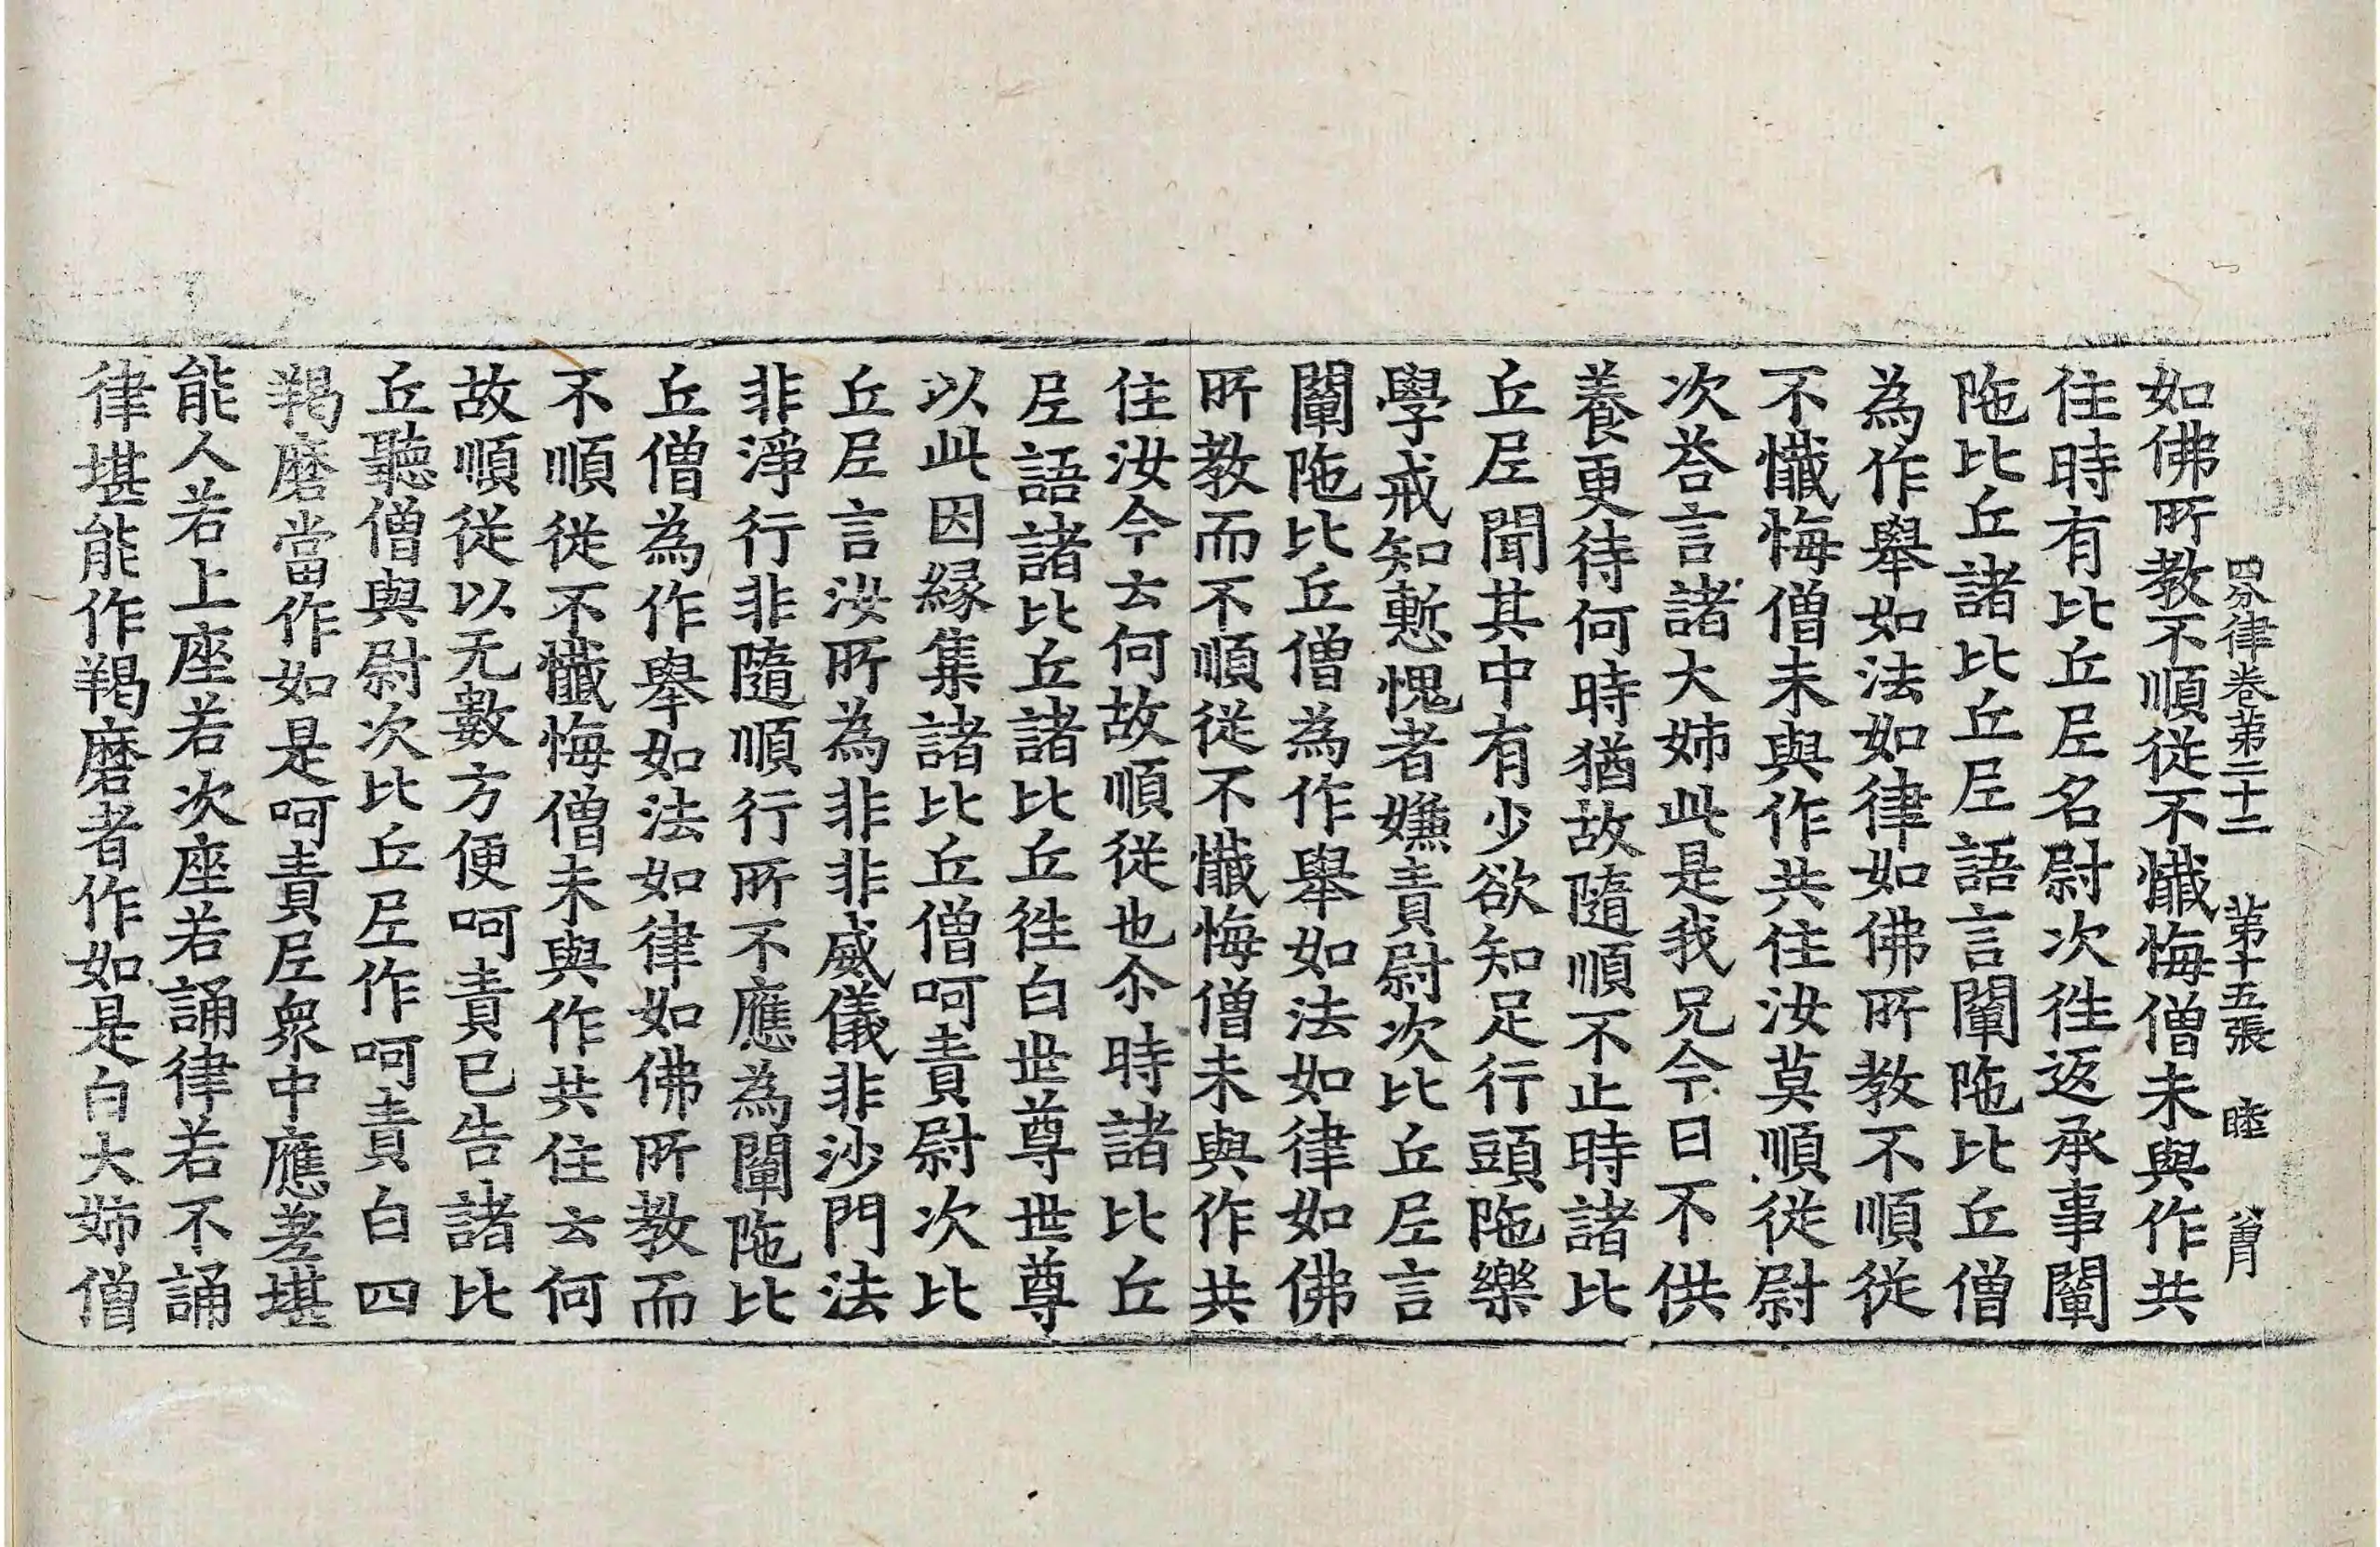 四分律卷第二十二 第十五張 睦
如佛所教不順從不懺悔僧未與作共
住時有比丘尼名尉次徃返承事闡
陁比丘諸比丘尼語言闡陁比丘僧
為作舉如法如律如佛所教不順從
不懺悔僧未與作共住汝莫順從尉
次荅言諸大姊此是我兄今日不供
養更待何時猶故隨順不止時諸比
丘尼聞其中有少欲知足行頭陁樂
學戒知慙愧者嫌責尉次比丘尼言
闡陁比丘僧為作舉如法如律如佛
所教而不順從不懺悔僧未與作共
住汝今云何故順從也尒時諸比丘
尼語諸比丘諸比丘徃白世尊世尊
以此因緣集諸比丘僧呵責尉次比
丘尼言汝所為非非威儀非沙門法
非淨行非隨順行所不應為闡陁比
丘僧為作舉如法如律如佛所教而
不順從不懺悔僧未與作共住云何
故順從以无數方便呵責已告諸比
丘聽僧與尉次比丘尼作呵責白四
羯磨當作如是呵責尼衆中應差堪
能人若上座若次座若誦律若不誦
律堪能作羯磨者作如是白大姊僧